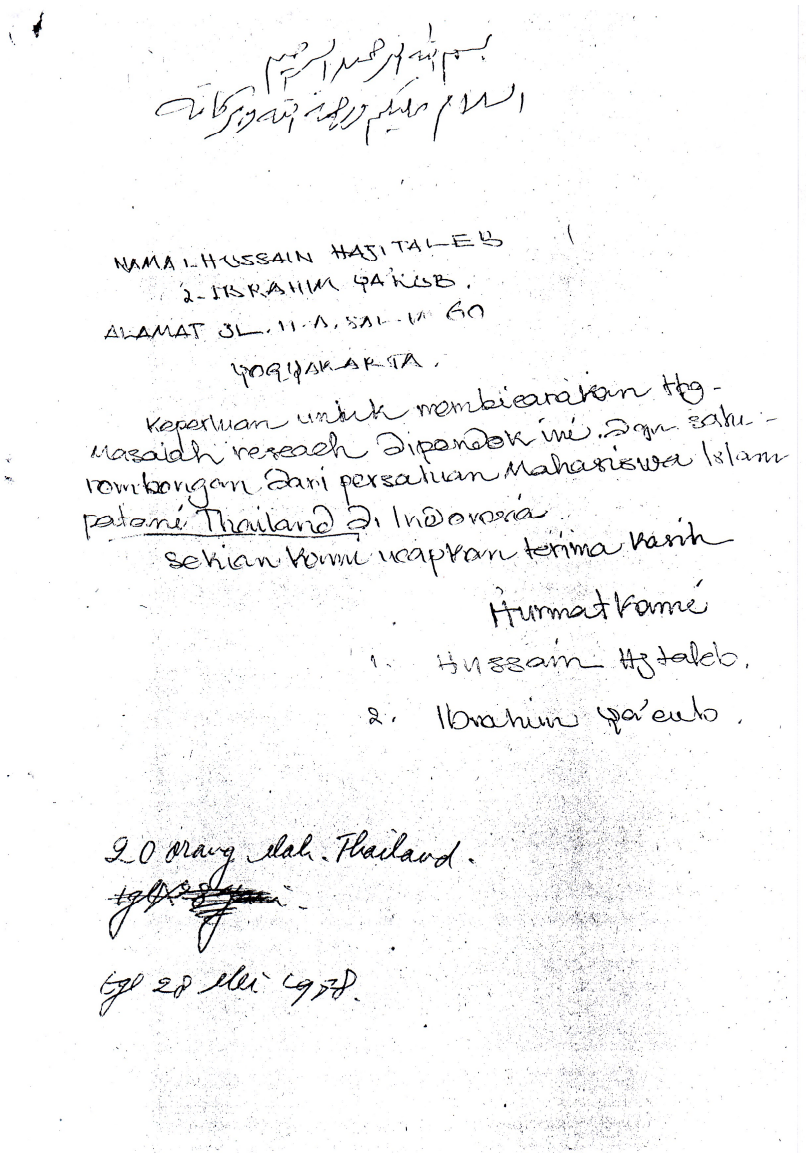 بسم الله الرحمن الرحيم
السلام عليكم ورحمة الله وبركاته
NAMA 1. HUSSAIN HAJI TALEB
2. IBRAHIM YAKUB.
ALAMAT JL. H. A. SALIM 60
YOGYAKARTA.
Keperluan untuk membicarakan ttg-
masalah reseach dipondok ini. dgn satu-
rombongan dari persatuan Mahasiswa Islam
patani Thailand di Indonesia
sekian kami ucapkan terima kasih
Hurmat kami
1. Hussain Hj taleb.
2. Ibrahim Ya'cub.
20 orang Mah. Thailand.
tgl 28 Mei 1978.